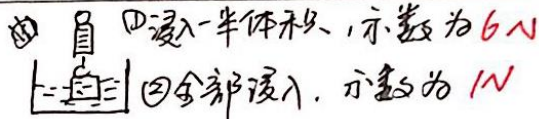 ①浸入一半体积、,示数为6N
②全部浸入.示数为1N